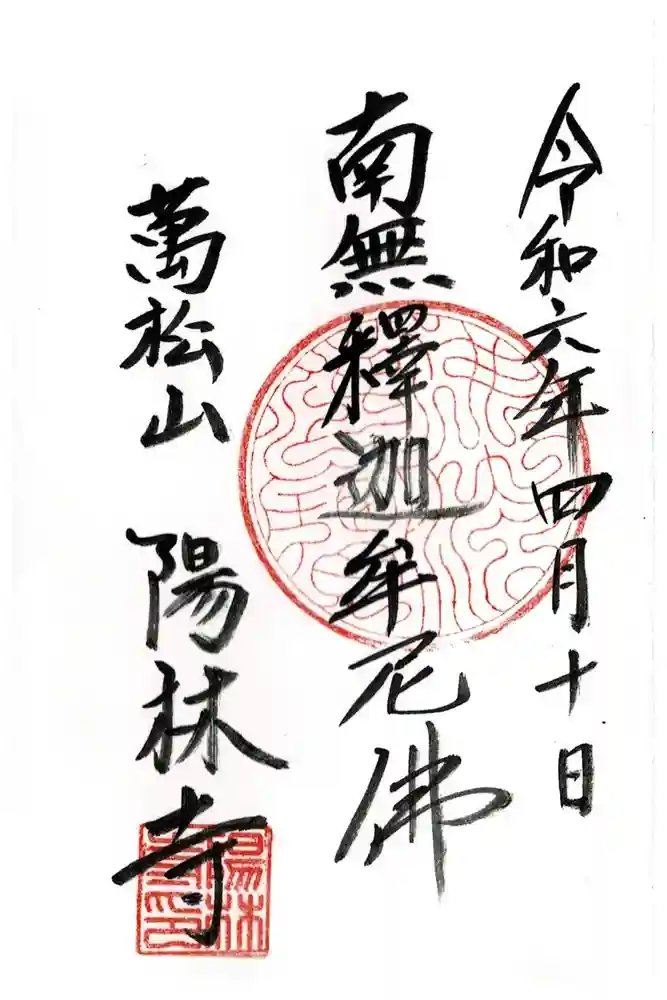 令和六年四月十日
南無釋迦牟尼佛
萬松山 陽林寺
陽林寺印